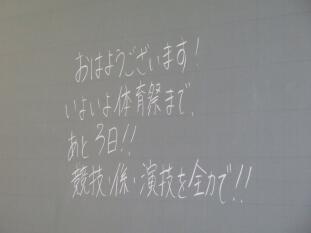 おはようございます！
いよいよ体育祭まで、
あと3日!!
競技・係・演技を全力で!!